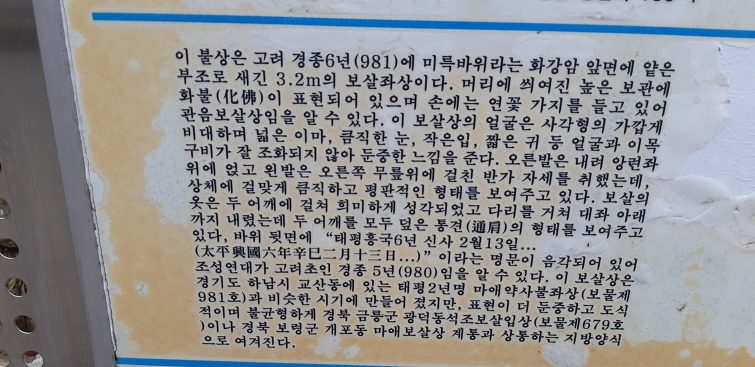 이 불상은 고려 경종6년(981)에 미륵바위라는 화강암 앞면에 얕은
부조로 새긴 3.2m의 보살좌상이다. 머리에 씌여진 높은 보관에
화불(化佛)이 표현되어 있으며 손에는 연꽃 가지를 들고 있어
관음보살상임을 알 수 있다. 이 보살상의 얼굴은 사각형의 가깝게
비대하며 넓은 이마, 큼직한 눈, 작은입, 짧은 귀 등 얼굴과 이목
구비가 잘 조화되지 않아 둔중한 느낌을 준다. 오른발은 내려 앙련좌
위에 얹고 왼발은 오른쪽 무릎위에 걸친 반가 자세를 취했는데,
상체에 걸맞게 큼직하고 평판적인 형태를 보여주고 있다. 보살의
옷은 두 어깨에 걸쳐 희미하게 성각되었고 다리를 거쳐 대좌 아래
까지 내렸는데 두 어깨를 모두 덮은 통견(通肩)의 형태를 보여주고
있다, 바위 뒷면에 “태평흥국6년 신사 2월13일...
(太平興國六年辛巳二月十三日...)” 이라는 명문이 음각되어 있어
조성연대가 고려초인 경종 5년(980)임을 알 수 있다. 이 보살상은
경기도 하남시 교산동에 있는 태평2년명 마애약사불좌상(보물제
981호)과 비슷한 시기에 만들어 졌지만, 표현이 더 둔중하고 도식
적이며 불균형하게 경북 금릉군 광덕동석조보살입상(보물제679호
)이나 경북 보령군 개포동 마애보살상 계통과 상통하는 지방양식
으로 여겨진다.